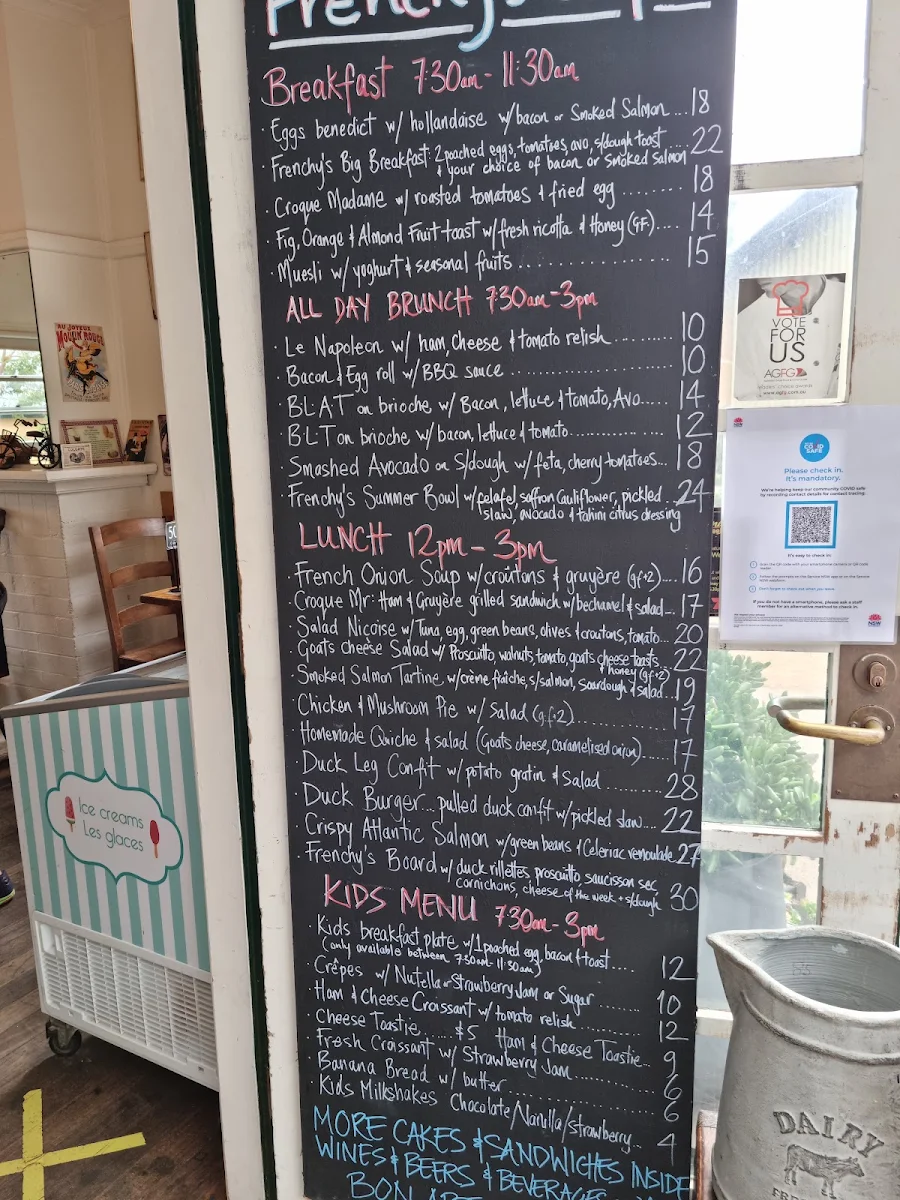 Breakfast 7:30am - 11:30am
· Eggs benedict w/ hollandaise w/bacon or Smoked Salmon...18
· Frenchy's Big Breakfast: 2 poached eggs, tomatoes, avo, s/dough toast.....22
& your choice of bacon or smoked salmon
· Croque Madame w/ roasted tomatoes & fried egg ........ 18
· Fig, Orange & Almond Fruit toast w/ fresh ricotta & Honey (GF).... 14
· Muesli w/ yoghurt & seasonal fruits .................. 15
ALL DAY BRUNCH 730am-3pm
· Le Napoleon w/ ham, cheese & tomato relish........... 10
· Bacon & Egg roll w/ BBQ sauce ..................... 10
· BLAT on brioche w/ Bacon, lettuce & tomato, Avo..... 14
· BLT on brioche w/ bacon, lettuce & tomato............... 12
· Smashed Avocado on S/dough w/ feta, cherry tomatoes... 18
· Frenchy's Summer Bowl w/ felafel, saffron Cauliflower, pickled ...24
slaw, avocado & tahini citrus dressing
LUNCH 12pm - 3pm
· French Onion Soup w/ croutons & gruyère (gf+2)...16
· Croque Mr: Ham & Gruyère grilled sandwich w/ bechamel & salad...17
· Salad Nicoise w/ Tuna, egg, green beans, olives & croutons, tomato... 20
· Goats cheese Salad w/ Proscuitto, walnuts, tomato, goats cheese toasts...22
& honey (gf+2)
· Smoked Salmon Tartine, w/ crème fraîche, s/salmon, sourdough & salad...19
· Chicken & Mushroom Pie w/ Salad (gf+2)................. 17
· Homemade Quiche & salad (Goats cheese, caramelised onion)........ 17
· Duck Leg Confit w/ potato gratin & salad ............ 28
· Duck Burger... pulled duck confit w/ pickled slaw.... 22
· Crispy Atlantic Salmon w/ green beans & Celeriac remoulade 27
· Frenchy's Board w/ duck rillettes, proscuitto, saucisson sec, 30
cornichons, cheese of the week + s/dough
KIDS MENU 7:30am - 3pm
· Kids breakfast plate w/ 1 poached egg, bacon & toast.... 12
(only available between 7:30am-11:30am)
· Crêpes w/ Nutella or Strawberry Jam or Sugar ......... 10
· Ham & Cheese Croissant w/ tomato relish............. 12
· Cheese Toastie..... $5 Ham & Cheese Toastie.. 9
· Fresh Croissant w/ Strawberry Jam ............ 6
· Banana Bread w/ butter....................... 6
· Kids Milkshakes Chocolate/Vanilla/strawberry... 4
MORE CAKES & SANDWICHES INSIDE
WINES & BEERS & BEVERAGES
BON
AU JOYEUX
MOULIN ROUGE
Ice creams
Les glaces
VOTE
FOR
US
AGFG
www.agfg.com.au
COVID
SAFE
Please check in.
It's mandatory.
We're helping keep our community COVID safe
by recording contact details for contact tracing
It's easy to check in:
If you do not have a smartphone, please ask a staff
member for an alternative method to check in.
NSW
DAIRY